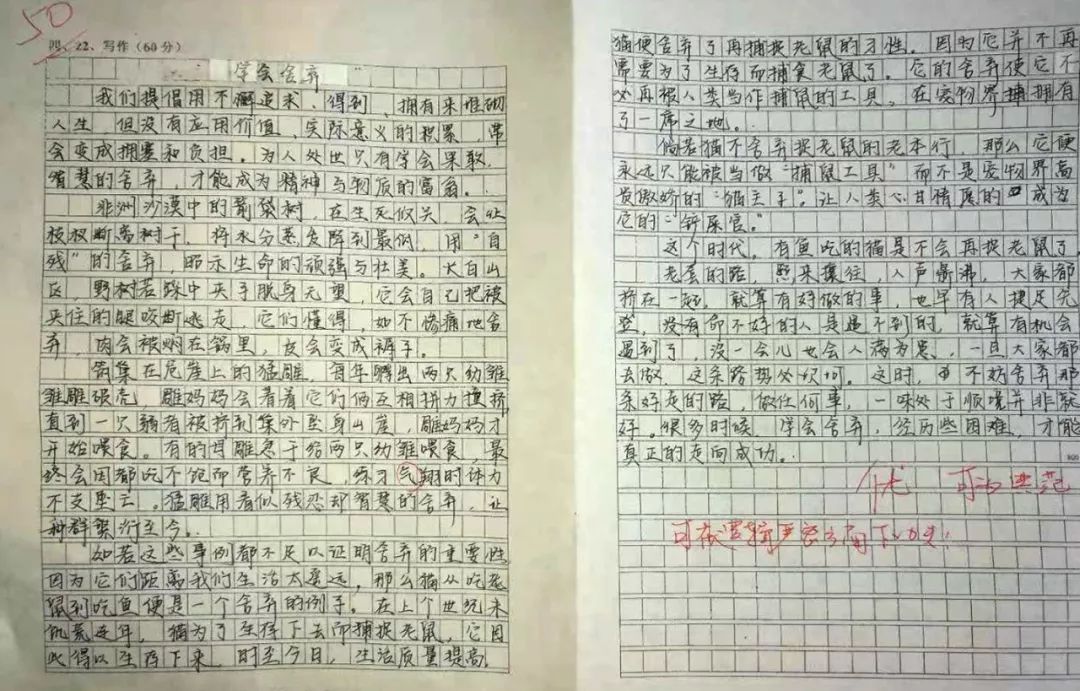 50
四、22、写作(60分)
学会舍弃
我们提倡用不懈追求、得到、拥有来堆砌
人生,但没有应用价值、实际意义的积累,常
会变成拥塞和负担。为人处世只有学会果敢、
智慧的舍弃,才能成为精神与物质的富翁。
非洲沙漠中的箭袋树,在生死攸关,会让
枝杈断离树干,将水分蒸发降到最低,用“自
残”的舍弃,昭示生命的顽强与壮美。大白山
区,野树若踩中夹子脱身无望,它会自己把被
夹住的腿咬断逃走,它们懂得,如不惨痛地舍
弃,肉会被焖在锅里,皮会变成裤子。
筑巢在危崖上的猛雕,每年孵出两只幼雏
雏雕破壳,雕妈妈会看着它们俩互相拼力推挤
直到一只弱者被挤到巢外坠身山崖,雕妈妈才
开始喂食。有的母雕忽于给两只幼雏喂食,最
终会因都吃不饱而营养不良,练习气翔时体力
不支坠亡。猛雕用看似残忍却智慧的舍弃,让
种群繁衍至今。
如若这些事例都不足以证明舍弃的重要性
因为它们距离我们生活太遥远,那么猫从吃老
鼠到吃鱼便是一个舍弃的例子。在上个世纪末
饥荒连年,猫为了生存下去而捕捉老鼠,它因
此得以生存下来,时至今日,生活质量提高,
猫便舍弃了再捕捉老鼠的习性。因为它并不再
需要为了生存而捕食老鼠了。它的舍弃使它不
必再被人类当作捕鼠的工具,在宠物界拥有
了一席之地。
倘若猫不舍弃捉老鼠的老本行,那么它便
永远只能被当做“捕鼠工具”而不是宠物界高
贵傲娇的“猫主子”。让人类心甘情愿的成为
它的“铲屎官。”
这个时代,有鱼吃的猫是不会再捉老鼠了
老套的路,熙来攘往,人声鼎沸,大家都
挤在一起,就算有好做的事,也早有人捷足先
登,没有命不好的人是遇不到的,就算有机会
遇到了,没一会儿也会人满为患,一旦大家都
去做,这条路势必坎坷。这时,不妨舍弃那
条好走的路,做任何事,一味处于顺境并非就
好。很多时候,学会舍弃,经历些困难,才能
真正的走向成功。
800
优 可为典范
可在逻辑严密方面下功夫